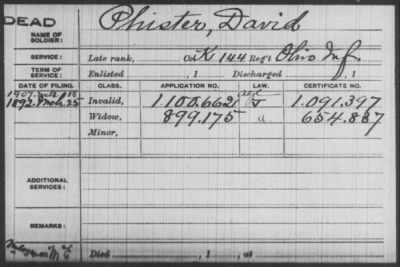 DEAD
Phister, David
NAME OF SOLDIER:
SERVICE: Late rank, Co. K, 144 Reg't Ohio Inf.
TERM OF SERVICE: Enlisted , 1 Discharged , 1
DATE OF FILING. CLASS. APPLICATION NO. LAW. CERTIFICATE NO.
1892. Mch. 25 Invalid, 1.100.662 1.091.397
Widow, 899.175 a 654.887
Minor,
ADDITIONAL SERVICES:
REMARKS:
Died , 1 , at